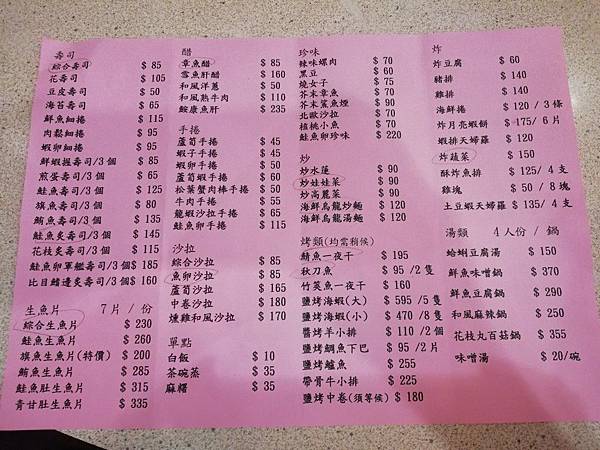 壽司
綜合壽司 $ 85
花壽司 $ 105
豆皮壽司 $ 50
海苔壽司 $ 65
鮮魚細捲 $ 115
肉鬆細捲 $ 95
蝦卵細捲 $ 95
鮮蝦握壽司/3個 $ 85
煎蛋壽司/3個 $ 65
鮭魚壽司/3個 $ 125
旗魚壽司/3個 $ 80
鮪魚壽司/3個 $ 135
鮭魚炙壽司/3個 $ 145
花枝炙壽司/3個 $ 115
鮭魚卵軍艦壽司/3個 $ 185
比目鰭邊炙壽司/3個 $ 160
生魚片 7片 / 份
綜合生魚片 $ 230
鮭魚生魚片 $ 260
旗魚生魚片(特價) $ 200
鮪魚生魚片 $ 285
鮭魚肚生魚片 $ 315
青甘肚生魚片 $ 335
醋
章魚醋 $ 85
雪魚肝醋 $ 160
和風洋蔥 $ 50
和風熟牛肉 $ 110
鮟康魚肝 $ 235
手捲
蘆筍手捲 $ 45
蝦子手捲 $ 45
蝦卵手捲 $ 50
蘆筍蝦手捲 $ 60
松葉蟹肉棒手捲 $ 50
牛肉手捲 $ 55
龍蝦沙拉手捲 $ 65
鮭魚卵手捲 $ 115
沙拉
綜合沙拉 $ 85
魚卵沙拉 $ 85
蘆筍沙拉 $ 165
中卷沙拉 $ 180
燻雞和風沙拉 $ 170
單點
白飯 $ 10
茶碗蒸 $ 35
麻糬 $ 35
珍味
辣味螺肉 $ 70
黑豆 $ 60
燒女子 $ 75
芥末章魚 $ 70
芥末鯊魚煙 $ 90
北歐沙拉 $ 70
植桃小魚 $ 70
鮭魚卵珍味 $ 220
炒
炒水蓮 $ 90
炒娃娃菜 $ 90
炒高麗菜 $ 90
海鮮烏龍炒麵 $ 120
海鮮烏龍湯麵 $ 120
烤類(均需稍候)
鯖魚一夜干 $ 195
秋刀魚 $ 95 /2 隻
竹筴魚一夜干 $ 160
鹽烤海蝦(大) $ 595 /5 隻
鹽烤海蝦(小) $ 470 /8 隻
醬烤羊小排 $ 110 /2 個
鹽烤鯛魚下巴 $ 95 /2 片
鹽烤鱸魚 $ 255
帶骨牛小排 $ 225
鹽烤中卷(須等候) $ 180
炸
炸豆腐 $ 60
豬排 $ 140
雞排 $ 140
海鮮捲 $ 120 / 3 條
炸月亮蝦餅 $ 175/ 6 片
蝦排天婦羅 $ 120
炸蔬菜 $ 150
酥炸魚排 $ 125/ 4 支
雞塊 $ 50 / 8 塊
土豆蝦天婦羅 $ 135/ 4 支
湯類 4人份 / 鍋
蛤蜊豆腐湯 $ 150
鮮魚味噌鍋 $ 370
鮮魚豆腐鍋 $ 290
和風麻辣鍋 $ 250
花枝丸百菇鍋 $ 355
味噌湯 $ 20/碗